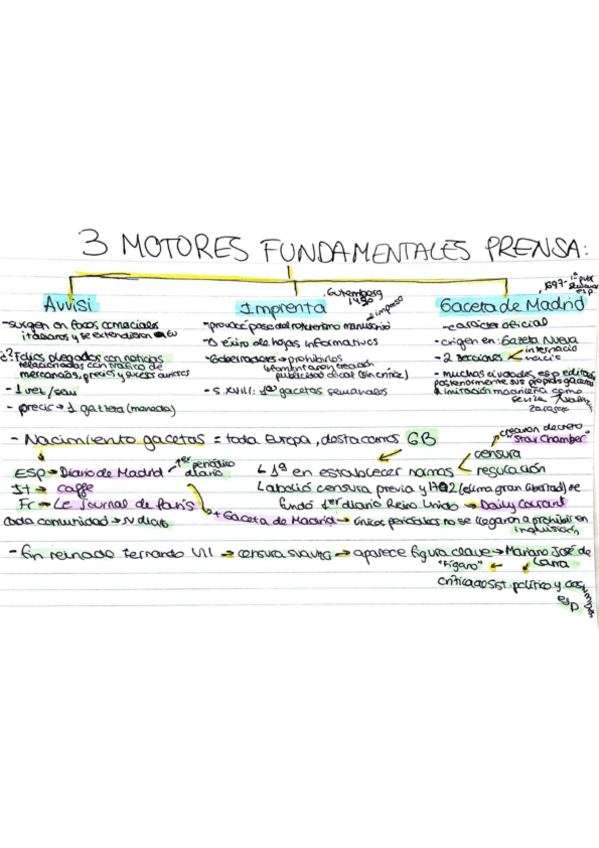 3 MOTORES FUNDAMENTALES PRENSA:
Avvisi
-surgen en focos comerciales
italianos y se extendieron EU
¿? Folios plegados con noticias
relacionadas con tráfico de
mercancías, precios y sucesos
- 1 vez/sem
- precio → 1 gazzeta (moneda)
Gutemberg
1450
Imprenta
impreso
-provocó paso del manuscrito
-Δ éxito de hojas informativas
-Gobernadores → prohibirlos
fomentaron creación
publicidad oficial (sin crítica)
- S. XVIII: 1as gacetas semanales
1697- 1ª pub
esp
Gaceta de Madrid
-carácter oficial
-origen en: Gazeta Nueva
- 2 secciones internacio
nacio
- muchas ciudades esp editaron
posteriormente sus propias gacetas
a imitación madrileña como
Sevilla Valencia
Zaragoza
- Nacimiento gacetas = toda Europa, destacamos GB
crearon decreto
"Star Chamber"
ESP → Diario de Madrid 1er periódico
diario
It → caffe
Fr → Le Journal de París
cada comunidad → su diario
↳ 1º en establecer normas censura
regulación
↳ abolió censura previa y (clima gran libertad) se
fundó 1er diario Reino Unido → Daily Courant
+ Gaceta de Madrid → únicos periódicos no se llegaron a prohibir en
inquisición
- En reinado Fernando VII → censura → aparece figura clave → Mariano José de
Larra
"Fígaro" ←
critica sist. político y costumbres
esp